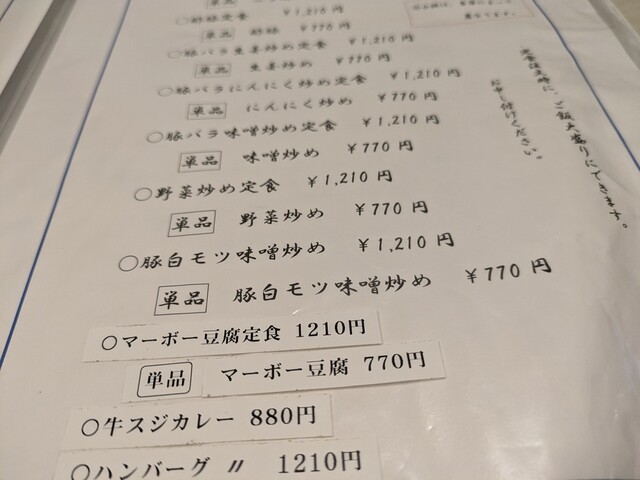 ○酢豚定食 ¥1,210円
単品 酢豚 ¥770円
○豚バラ生姜炒め定食 ¥1,210円
単品 生姜炒め ¥770円
○豚バラにんにく炒め定食 ¥1,210円
単品 にんにく炒め ¥770円
○豚バラ味噌炒め定食 ¥1,210円
単品 味噌炒め ¥770円
○野菜炒め定食 ¥1,210円
単品 野菜炒め ¥770円
○豚白モツ味噌炒め ¥1,210円
単品 豚白モツ味噌炒め ¥770円
○マーボー豆腐定食 1210円
単品 マーボー豆腐 770円
○牛スジカレー 880円
○ハンバーグ 〃 1210円
定食注文時に、ご飯大盛りにできます。
お申し付けください。